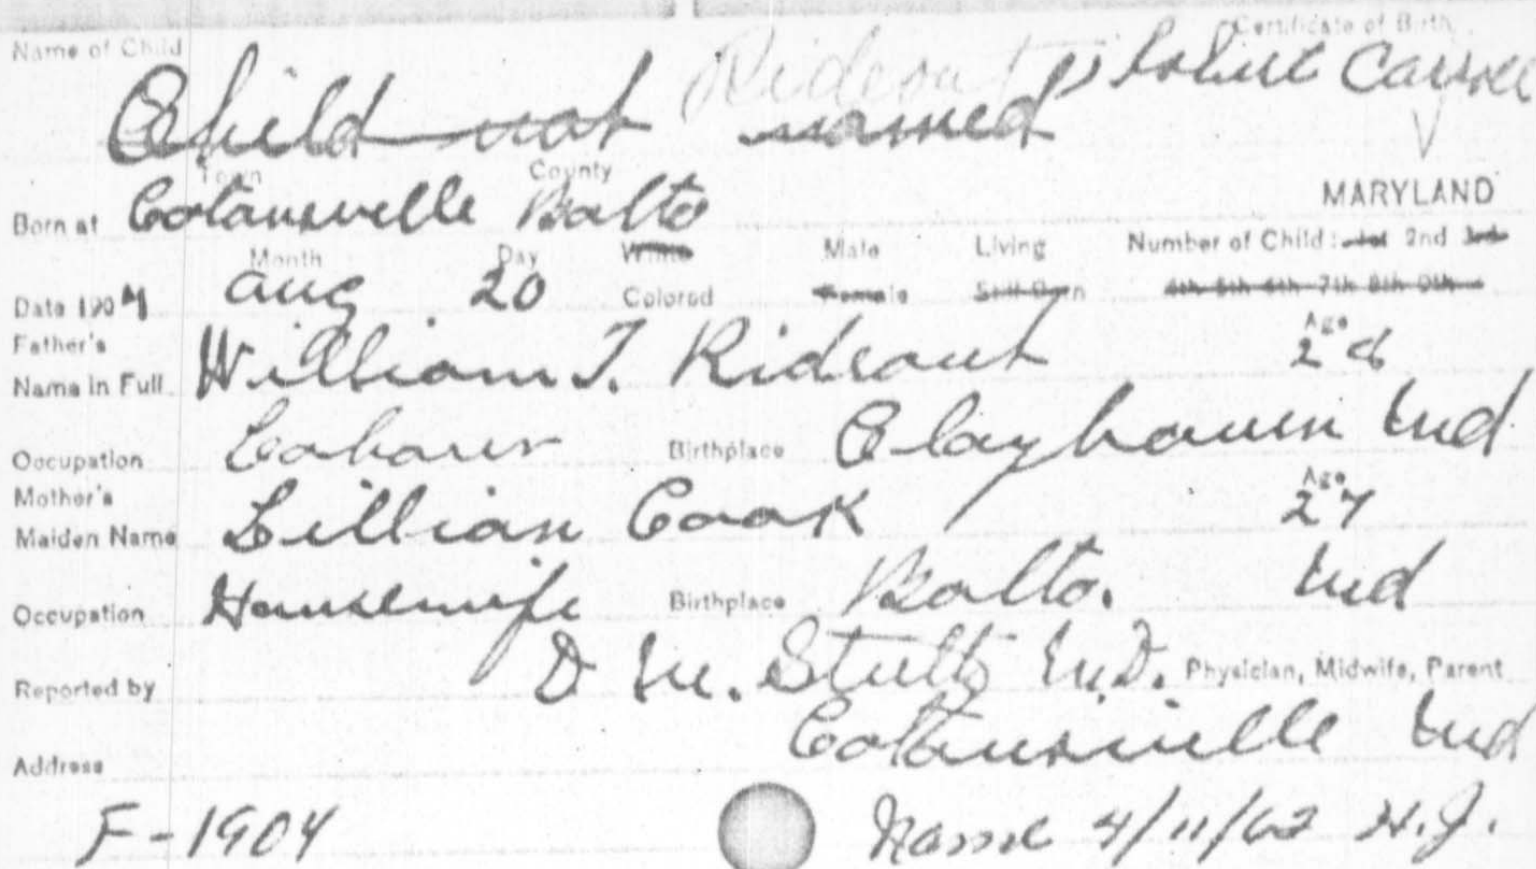 Name of Child
Certificate of Birth
Rideout, Robert Carroll
Child not named
Town County
Born at Catonsville Balto MARYLAND
Month Day White Male Living Number of Child: 1st 2nd 3rd
Date 1904 Aug 20 Colored Female Still Born 4th 5th 6th 7th 8th 9th
Father's Age
Name in Full William T. Rideout 28
Occupation Laborer Birthplace Md
Mother's Age
Maiden Name Lillian Cook 27
Occupation Housewife Birthplace Balto. Md
Reported by D M. Stultz M.D. Physician, Midwife, Parent
Address Catonsville Md
F-1904 Name 4/11/62 H.J.